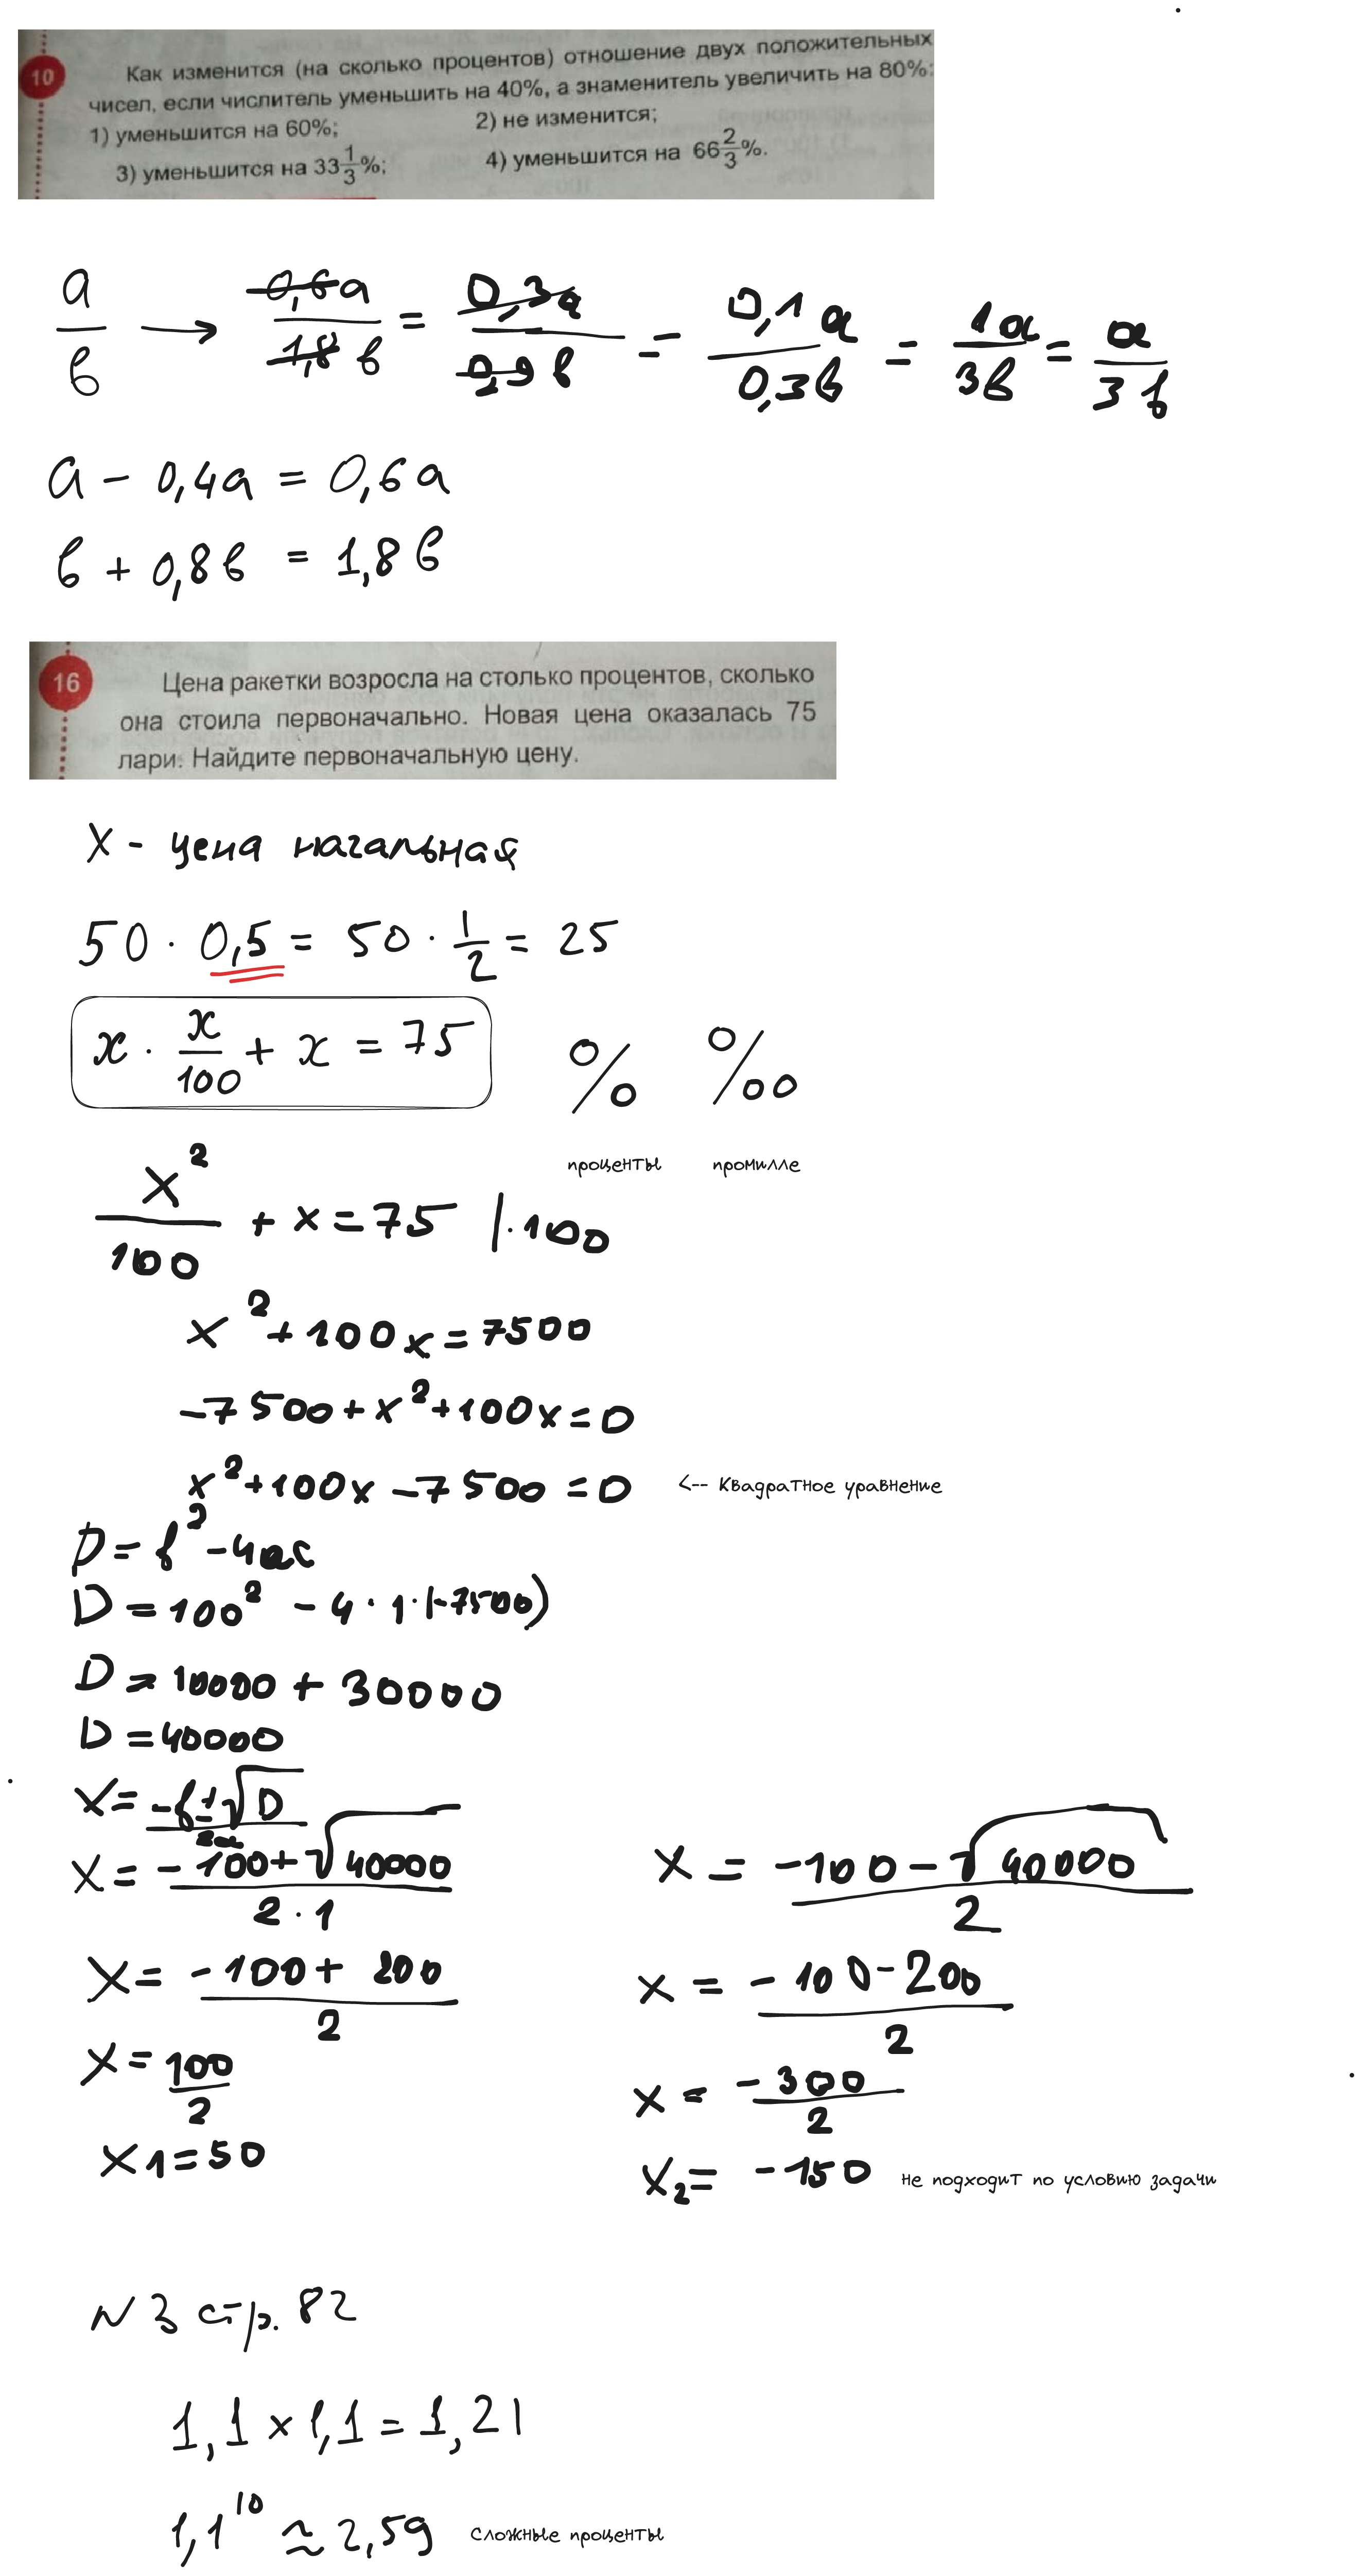 10
Как изменится (на сколько процентов) отношение двух положительных
чисел, если числитель уменьшить на 40%, а знаменитель увеличить на 80%:
1) уменьшится на 60%; 2) не изменится;
3) уменьшится на 33 1/3 %; 4) уменьшится на 66 2/3 %.
a/в → 0,6a/1,8в = 0,3a/0,9в = 0,1a/0,3в = 1a/3в = a/3в
a - 0,4a = 0,6a
в + 0,8в = 1,8в
16
Цена ракетки возросла на столько процентов, сколько
она стоила первоначально. Новая цена оказалась 75
лари. Найдите первоначальную цену.
x - цена начальная
50 · 0,5 = 50 · 1/2 = 25
x · x/100 + x = 75
% ‰
проценты промилле
x²/100 + x = 75 | · 100
x² + 100x = 7500
-7500 + x² + 100x = 0
x² + 100x - 7500 = 0 <-- Квадратное уравнение
D = в² - 4ac
D = 100² - 4 · 1 · (-7500)
D = 10000 + 30000
D = 40000
x = -в ± √D / 2a
x = -100 + √40000 / 2 · 1 x = -100 - √40000 / 2
x = -100 + 200 / 2 x = -100 - 200 / 2
x = 100/2 x = -300/2
x1 = 50 x₂ = -150 не подходит по условию задачи
N 3 стр. 82
1,1 × 1,1 = 1,21
1,1¹⁰ ≈ 2,59 Сложные проценты